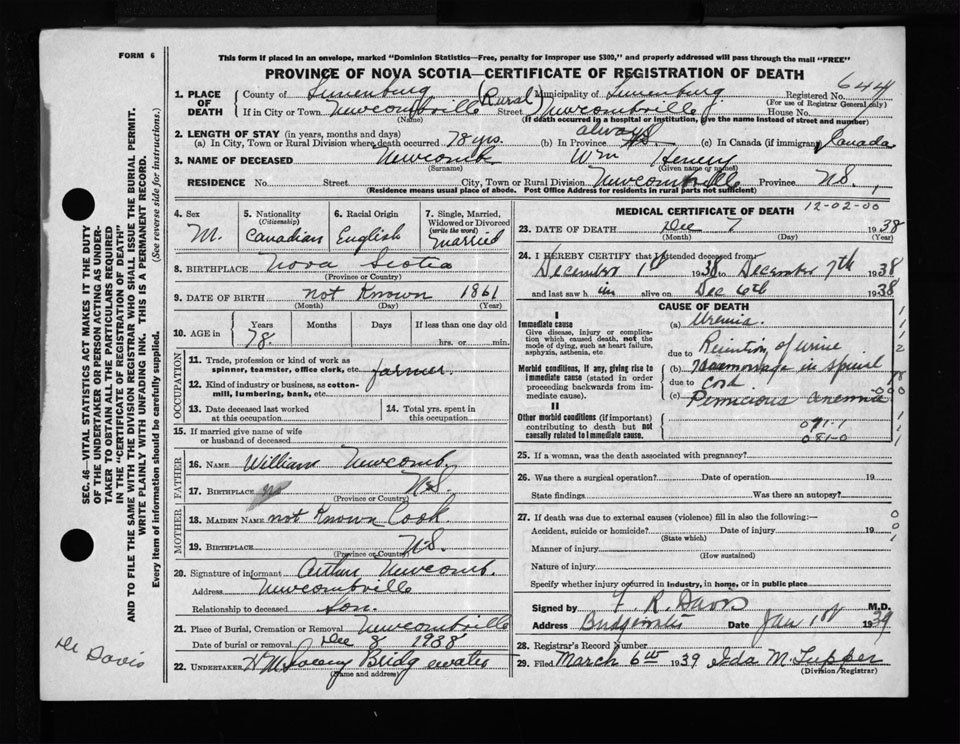 FORM 6
This form if placed in an envelope, marked "Dominion Statistics—Free, penalty for improper use $300," and properly addressed will pass through the mail "FREE"
PROVINCE OF NOVA SCOTIA—CERTIFICATE OF REGISTRATION OF DEATH
644
1. PLACE OF DEATH County of Lunenburg (Rural) Municipality of Lunenburg Registered No.
(For use of Registrar General only)
If in City or Town Newcombville Street Newcombville House No.
(Name) (If death occurred in a hospital or institution, give the name instead of street and number)
2. LENGTH OF STAY (in years, months and days)
(a) In City, Town or Rural Division where death occurred 78 yrs. (b) In Province always (c) In Canada (if immigrant) Canada
3. NAME OF DECEASED Newcomb Wm Henery
(Surname) (Given name or names)
RESIDENCE No. Street City, Town or Rural Division Newcombville Province N.S.
(Residence means usual place of abode. Post Office Address for residents in rural parts not sufficient)
4. Sex M.
5. Nationality (Citizenship) Canadian
6. Racial Origin English
7. Single, Married, Widowed or Divorced (write the word) married
8. BIRTHPLACE Nova Scotia
(Province or Country)
9. DATE OF BIRTH not Known 1861
(Month) (Day) (Year)
10. AGE in Years 78. Months Days If less than one day old
hrs. or min.
OCCUPATION
11. Trade, profession or kind of work as spinner, teamster, office clerk, etc. farmer.
12. Kind of industry or business, as cotton-mill, lumbering, bank, etc.
13. Date deceased last worked at this occupation
14. Total yrs. spent in this occupation
15. If married give name of wife or husband of deceased
FATHER
16. NAME William Newcomb
17. BIRTHPLACE N.S.
(Province or Country)
MOTHER
18. MAIDEN NAME not Known Cook.
19. BIRTHPLACE N.S.
(Province or Country)
20. Signature of informant Arthur Newcomb.
Address Newcombville
Relationship to deceased Son.
21. Place of Burial, Cremation or Removal Newcombville
Date of burial or removal Dec 8 1938
22. UNDERTAKER Bridgewater
(Name and address)
MEDICAL CERTIFICATE OF DEATH 12-02-00
23. DATE OF DEATH Dec 7 1938
(Month) (Day) (Year)
24. I HEREBY CERTIFY that I attended deceased from
December 1st 1938 to December 7th 1938
and last saw him alive on Dec 6th 1938
CAUSE OF DEATH
I
Immediate cause
Give disease, injury or complication which caused death, not the mode of dying, such as heart failure, asphyxia, asthenia, etc.
(a) Uremia.
due to Retention of urine
Morbid conditions, if any, giving rise to immediate cause (stated in order proceeding backwards from immediate cause).
(b) Haemorrhage in spinal
due to Cord
(c) Pernicious anemia
II
Other morbid conditions (if important) contributing to death but not causally related to immediate cause.
071-1
081-0
25. If a woman, was the death associated with pregnancy?
26. Was there a surgical operation? Date of operation 19
State findings Was there an autopsy?
27. If death was due to external causes (violence) fill in also the following:—
Accident, suicide or homicide? Date of injury 19
(State which)
Manner of injury
(How sustained)
Nature of injury
Specify whether injury occurred in industry, in home, or in public place
Signed by F. R. Davis M.D.
Address Bridgewater Date Jan 1st 1939
28. Registrar's Record Number
29. Filed March 6th 1939 Ida M. Tupper
(Division Registrar)
SEC. 46—VITAL STATISTICS ACT MAKES IT THE DUTY
OF THE UNDERTAKER OR PERSON ACTING AS UNDER-
TAKER TO OBTAIN ALL THE PARTICULARS REQUIRED
IN THE "CERTIFICATE OF REGISTRATION OF DEATH"
AND TO FILE THE SAME WITH THE DIVISION REGISTRAR WHO SHALL ISSUE THE BURIAL PERMIT.
WRITE PLAINLY WITH UNFADING INK. THIS IS A PERMANENT RECORD.
Every item of information should be carefully supplied. (See reverse side for instructions.)
Dr Davis